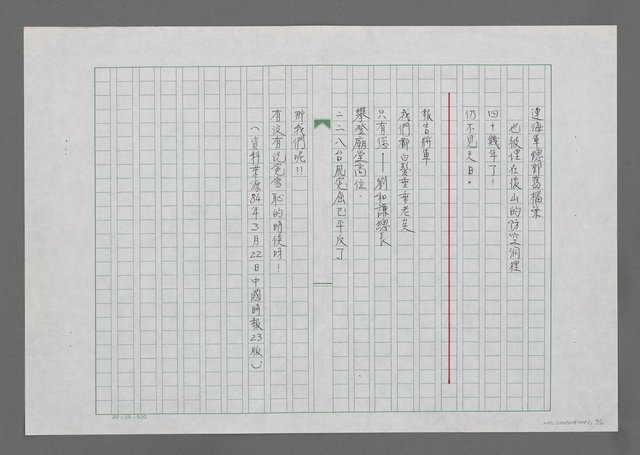 連海軍總部舊檔案
也被埋在後山的防空洞裡
四十幾年了！
仍不見天日。
報告將軍
我們都白髮重重老矣
只有您——劉和謙總長
攀登廟堂高位。
二二八台胞冤屈已平反了
那我們呢？！
有沒有說冤雪恥的時候呀！
（資料來源84年3月22日中國時報23版）
20×25=500